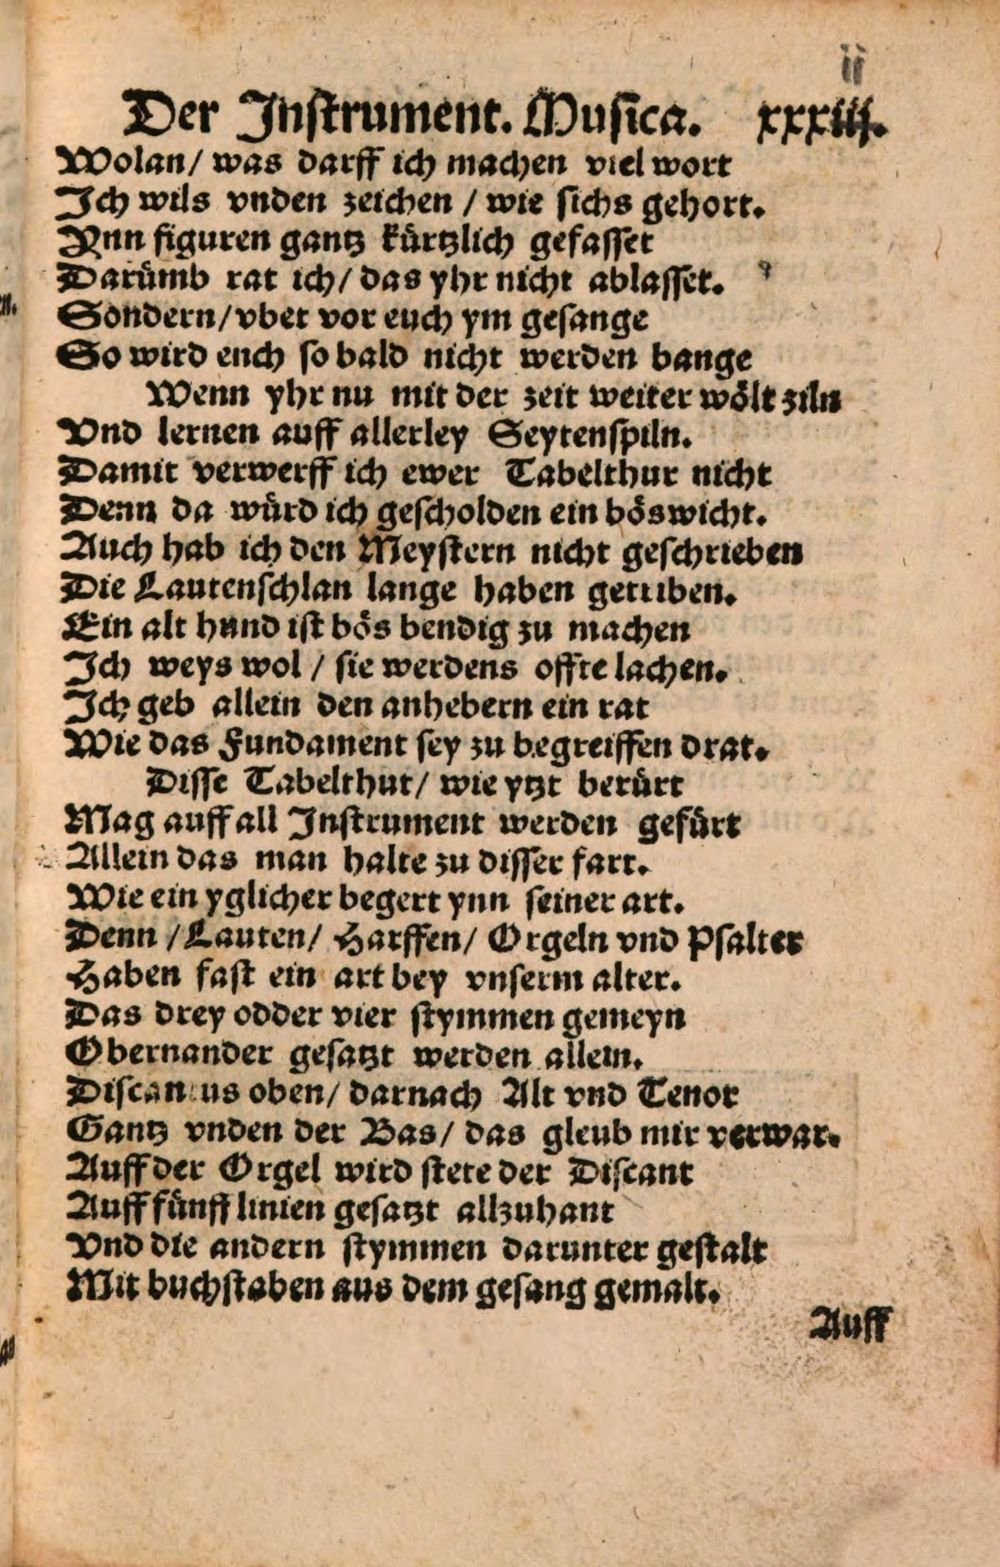 ii
Der Jnſtrument. Muſica. xxxiij.
Wolan/ was darff ich machen viel wort
Jch wils vnden zeichen / wie ſichs gehort.
Ynn figuren gantz kuͤrtzlich gefaſſet
Daruͤmb rat ich/ das yhr nicht ablaſſet.
Sondern/vbet vor euch ym geſange
So wird ench ſo bald nicht werden bange
Wenn yhr nu mit der zeit weiter woͤlt ziln
Vnd lernen auff allerley Seytenſpiln.
Damit verwerff ich ewer Tabelthur nicht
Denn da wuͤrd ich geſcholden ein boͤswicht.
Auch hab ich den Meyſtern nicht geſchrieben
Die Lautenſchlan lange haben getriben.
Ein alt hund iſt boͤs bendig zu machen
Jch weys wol / ſie werdens offte lachen.
Jch geb allein den anhebern ein rat
Wie das Fundament ſey zu begreiffen drat.
Diſſe Tabelthur/ wie ytzt beruͤrt
Mag auff all Jnſtrument werden gefuͤrt
Allein das man halte zu diſſer fart.
Wie ein yglicher begert ynn ſeiner art.
Denn /Lauten/ Harffen/ Orgeln vnd Pſalter
Haben faſt ein art bey vnſerm alter.
Das drey odder vier ſtymmen gemeyn
Obernander geſatzt werden allein.
Diſcantus oben/ darnach Alt vnd Tenor
Gantz vnden der Bas/ das gleub mir verwar.
Auff der Orgel wird ſtete der Diſcant
Auff fuͤnff linien geſatzt allzuhant
Vnd die andern ſtymmen darunter geſtalt
Mit buchſtaben aus dem geſang gemalt.
Auff